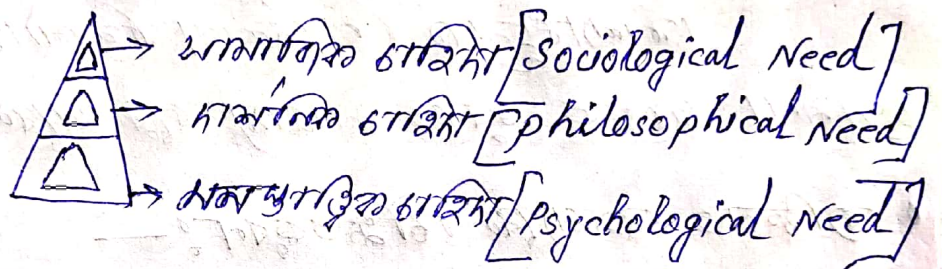 সামাজিক চাহিদা [Sociological Need]
দার্শনিক চাহিদা [Philosophical Need]
মনস্তাত্ত্বিক চাহিদা [Psychological Need]